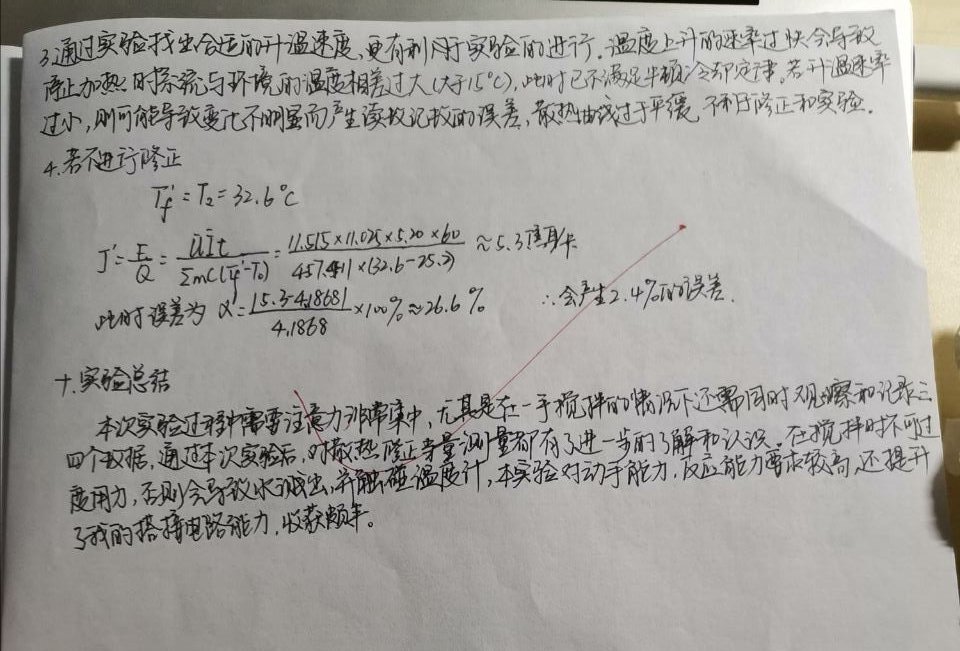 3.通过实验找出合适的升温速度、更有利用于实验的进行。温度上升的速率过快会导致
停止加热时系统与环境的温度相差过大(大于15℃),此时已不满足牛顿冷却定律。若升温速率
过小,则可能导致变化不明显而产生读数记数的误差,散热曲线过于平缓,不利于修正和实验.
4.若不进行修正
T_f'=T₂=32.6℃
J'=E/Q=ŪĪt/ΣmC(T_f'-T₀)=11.515×11.025×5.20×60/457.411×(32.6-25.3)≈5.3焦耳/卡
此时误差为 α=|5.3-4.1868|/4.1868×100%≈26.6% ∴会产生2.4%的误差.
十.实验总结
本次实验过程中需要注意力非常集中,尤其是在一手搅拌的情况下还需同时观察和记录三
四个数据,通过本次实验后,对散热修正等量测量都有了进一步的了解和认识。在搅拌时不可过
度用力,否则会导致水溅出,并触碰温度计,本实验对动手能力,反应能力要求较高,还提升
了我的搭接电路能力,收获颇丰。